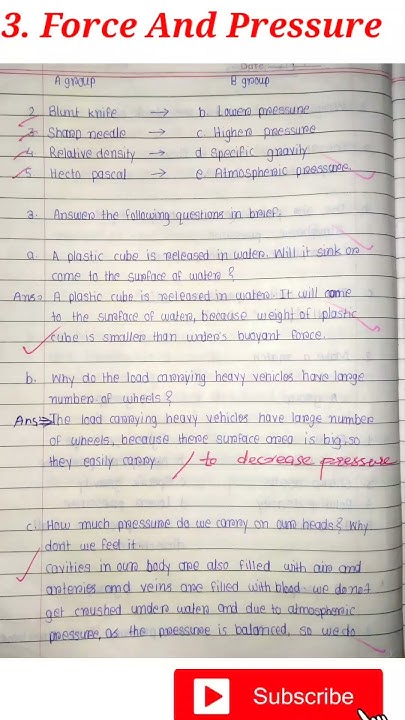 3. Force And Pressure
Date
A group B group
2. Blunt knife → b. Lower pressure
3. Sharp needle → c. Higher pressure
4. Relative density → d. Specific gravity
5. Hecto pascal → e. Atmospheric pressure.
3. Answer the following questions in brief.
a. A plastic cube is released in water. Will it sink or
come to the surface of water?
Ans⇒ A plastic cube is released in water. It will come
to the surface of water, because weight of plastic
cube is smaller than water's buoyant force.
b. Why do the load carrying heavy vehicles have large
number of wheels?
Ans⇒ The load carrying heavy vehicles have large number
of wheels, because there surface area is big, so
they easily carry / to decrease pressure
c. How much pressure do we carry on our heads? Why
dont we feel it.
Cavities in our body are also filled with air and
arteries and veins are filled with blood. we do not
get crushed under water and due to atmospheric
pressure, as the pressure is balanced, so we do
Subscribe